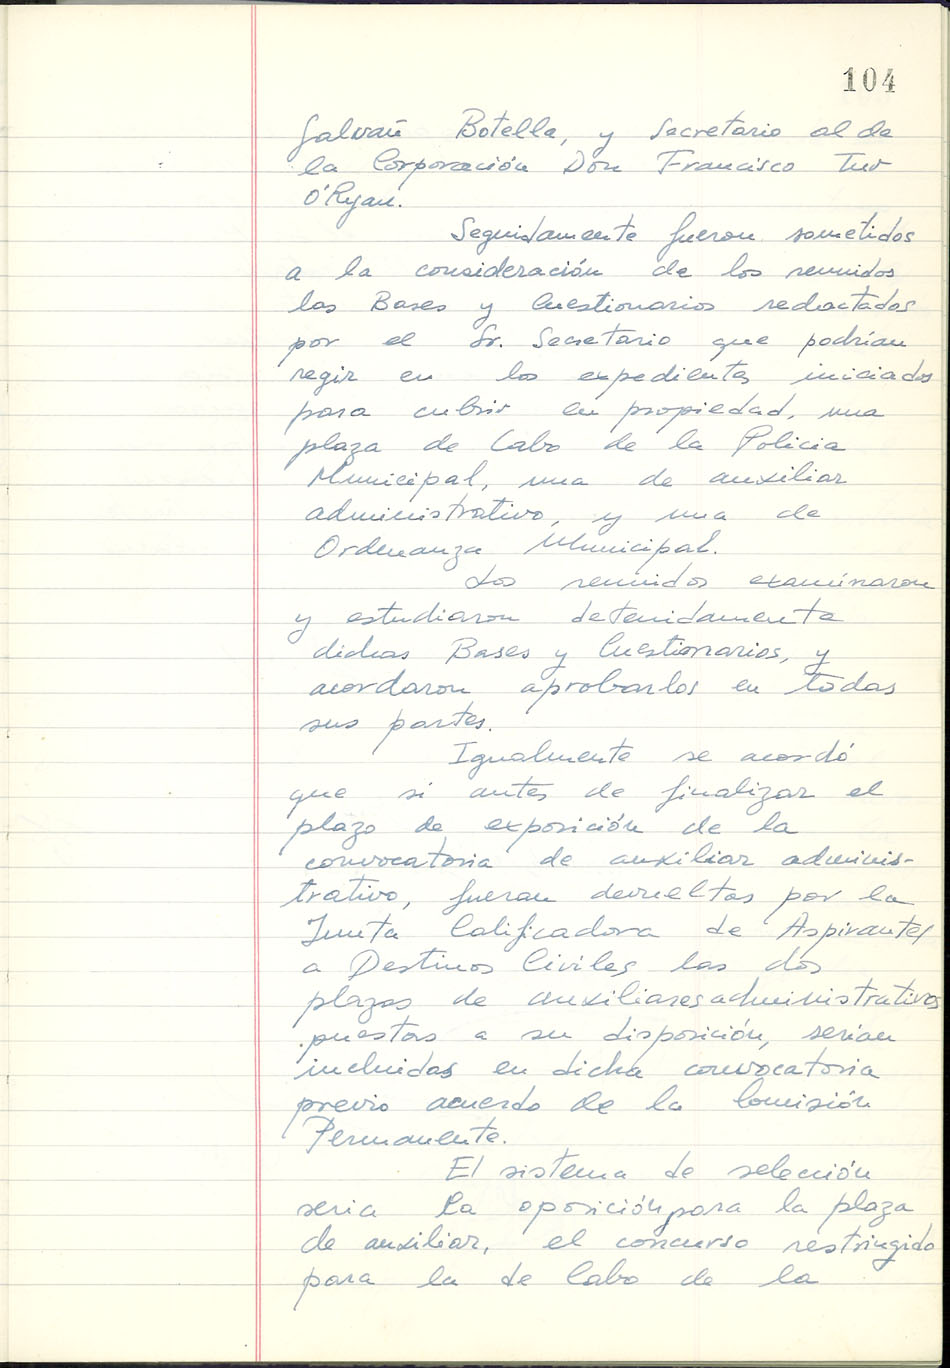 104
Galvañ Botella, y Secretario al de
la Corporación Don Francisco Tur
O'Ryan.
Seguidamente fueron sometidos
a la consideración de los reunidos
las Bases y Cuestionarios redactados
por el Sr. Secretario que podrían
regir en los expedientes iniciados
para cubrir en propiedad, una
plaza de Cabo de la Policia
Municipal, una de auxiliar
administrativo, y una de
Ordenanza Municipal.
Los reunidos examinaron
y estudiaron detenidamente
dichas Bases y Cuestionarios, y
acordaron aprobarlos en todas
sus partes.
Igualmente se acordó
que si antes de finalizar el
plazo de exposición de la
convocatoria de auxiliar adminis-
trativo, fueran devueltas por la
Junta Calificadora de Aspirantes
a Destinos Civiles las dos
plazas de auxiliares administrativos
puestas a su disposición, serian
incluidas en dicha convocatoria
previo acuerdo de la Comisión
Permanente.
El sistema de seleción
seria la oposición para la plaza
de auxiliar, el concurso restringido
para la de Cabo de la